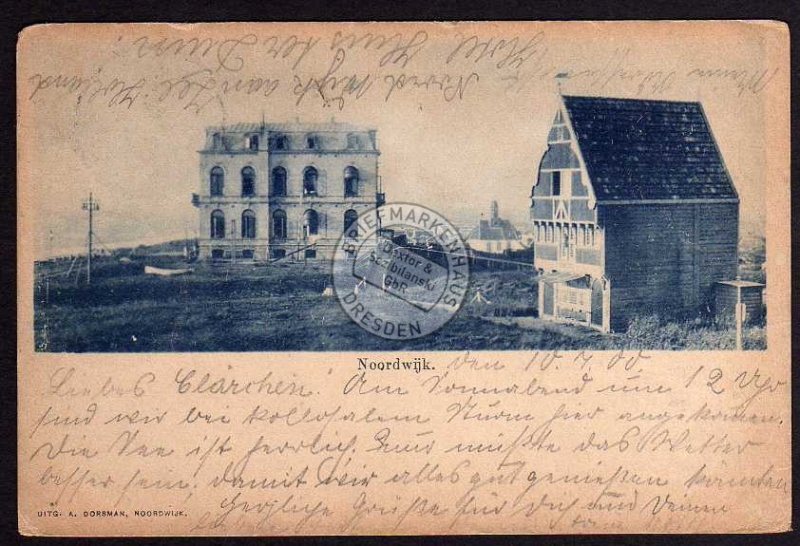 Noordwijk.
den 10.7.00
Liebes Clärchen! Am Sonnabend um 12 Uhr
sind wir bei kollosalem Sturm hier angekommen.
Die See ist herrlich. Nur müßte das Wetter
besser sein, damit wir alles gut genießen könnten
Herzliche Grüße für Dich und Deinen
UITG. A. DORSMAN, NOORDWIJK.
Hotel Huis ter Duin.
Noordwijk aan Zee. Holland
BRIEFMARKENHAUS
Dextor &
Scibilanski
GbR
DRESDEN